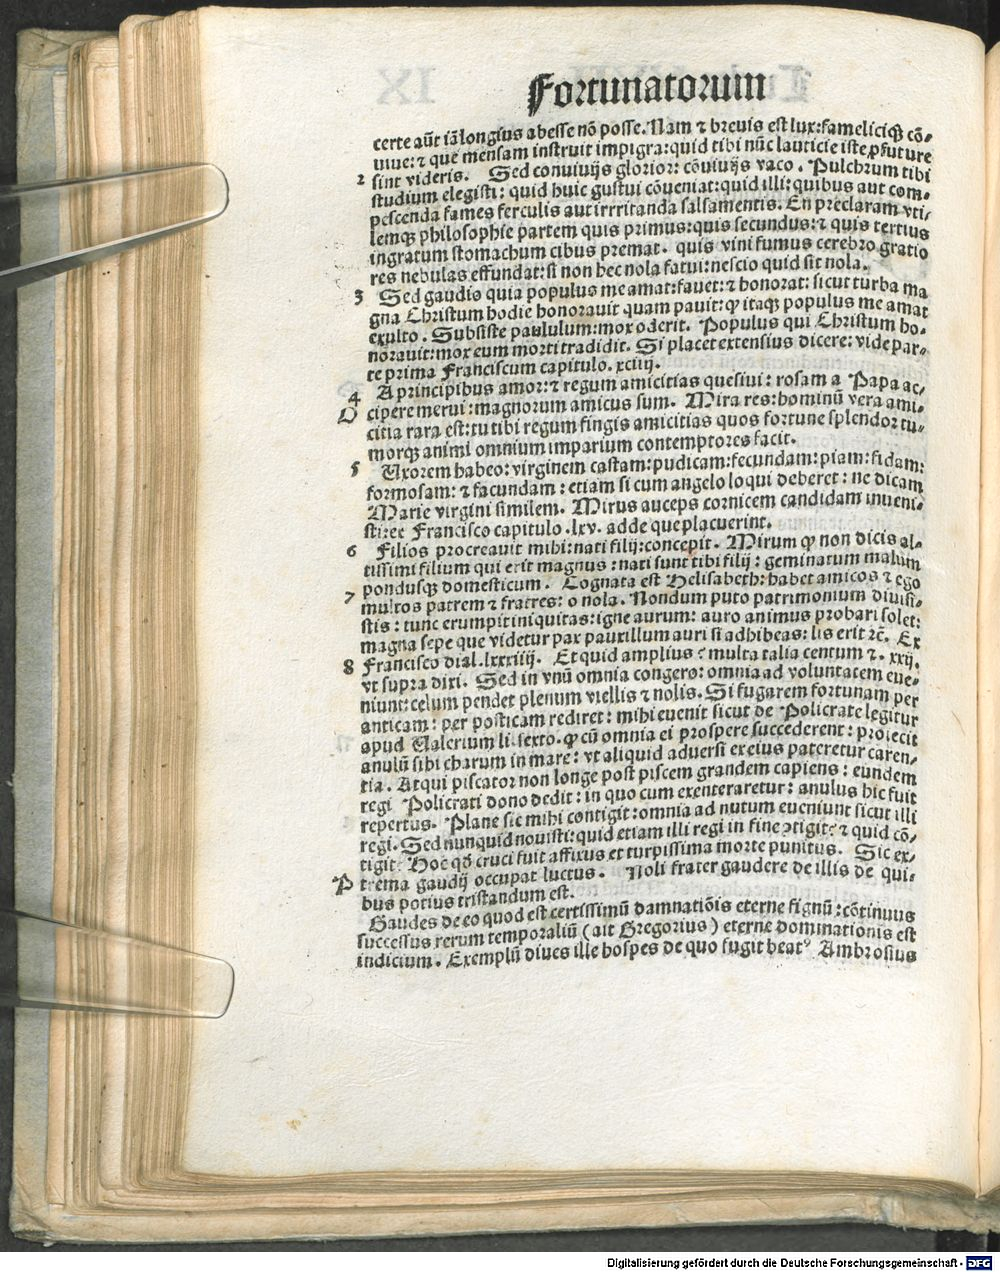 Fortunatorum
certe aūt iā longius abesse nō posse. Nam ⁊ breuis est lux: famelicisqꝫ cō-
uiue: ⁊ que mensam instruit impigra: quid tibi nūc lauticie iste ꝓfuture
2 sint videris. Sed conuiuijs glorior: cōuiuijs vaco. Pulchrum tibi
studium elegisti: quid huic gustui cōueniat: quid illi: quibus aut com-
pescenda fames ferculis aut irrritanda salsamentis. En preclaram vti-
lemqꝫ philosophie partem quis primus: quis secundus: ⁊ quis tertius
ingratum stomachum cibus premat. quis vini fumus cerebro gratio
res nebulas effundat: st non hec nola fatui: nescio quid sit nola.
3 Sed gaudio quia populus me amat: fauet: ⁊ honorat: sicut turba ma
gna Christum hodie honorauit quam pauit: ꝙ itaqꝫ populus me amat
exulto. Subsiste paululum: mox oderit. Populus qui Christum ho-
norauit: mox eum morti tradidit. Si placet extensius dicere: vide par-
te prima Franciscum capitulo. xciiij.
4 A principibus amor: ⁊ regum amicitias quesiui: rosam a Papa ac-
O cipere merui: magnorum amicus sum. Mira res: hominū vera ami-
citia rara est: tu tibi regum fingis amicitias quos fortune splendor tu-
morqꝫ animi omnium imparium contemptores facit.
5 Uxorem habeo: virginem castam: pudicam: fecundam: piam: fidam:
formosam: ⁊ facundam: etiam si cum angelo loqui deberet: ne dicam
Marie virgini similem. Mirus auceps cornicem candidam inueni-
sti: ex Francisco capitulo. lxv. adde que placuerint.
6 Filios procreauit mihi: nati filij: concepit. Mirum ꝙ non dicis al-
tissimi filium qui erit magnus: nati sunt tibi filij: geminatum malum
pondusqꝫ domesticum. Cognata est Helisabeth: habet amicos ⁊ ego
7 multos patrem ⁊ fratres: o nola. Nondum puto patrimonium diuisi-
stis: tunc erumpit iniquitas: igne aurum: auro animus probari solet:
magna sepe que videtur pax pauxillum auri si adhibeas: lis erit ⁊c̄. Ex
8 Francisco dial. lxxxiiij. Et quid amplius: multa talia centum ⁊. xxij.
vt supra dixi. Sed in vnū omnia congero: omnia ad voluntatem eue-
niunt: celum pendet plenum viellis ⁊ nolis. Si fugarem fortunam per
anticam: per posticam rediret: mihi euenit sicut de Policrate legitur
apud Ualerium li. sexto. ꝙ cū omnia ei prospere succederent: proiecit
anulū sibi charum in mare: vt aliquid aduersi ex eius pateretur caren-
tia. Atqui piscator non longe post piscem grandem capiens: eundem
regi Policrati dono dedit: in quo cum exenteraretur: anulus hic fuit
repertus. Plane sic mihi contigit: omnia ad nutum eueniunt sicut illi
regi. Sed nunquid nouisti: quid etiam illi regi in fine ↄtigit: ⁊ quid cō-
tigit? Hoc qđ cruci fuit affixus et turpissima morte punitus. Sic ex-
P trema gaudij occupat luctus. Noli frater gaudere de illis de qui-
bus potius tristandum est.
Gaudes de eo quod est certissimū damnatiōis eterne signū: cōtinuus
successus rerum temporaliū (ait Gregorius) eterne dominationis est
indicium. Exemplū diues ille hospes de quo fugit beatꝰ Ambrosius
Digitalisierung gefördert durch die Deutsche Forschungsgemeinschaft - DFG